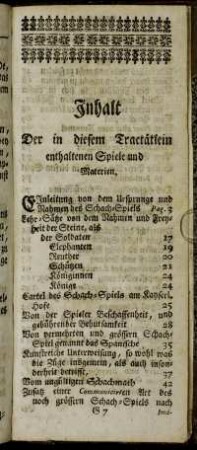 Inhalt
Der in diesem Tractätlein
enthaltenen Spiele und
Materien.
Einleitung von dem Ursprunge und
Nahmen des Schach-Spiels Pag. 3
Lehr-Sätze von dem Nahmen und Frey-
heit der Steine, als
der Soldaten 17
Elephanten 19
Reuther 20
Schützen 21
Königinnen 24
Könige 24
Cartel des Schach-Spiels am Kayserl.
Hofe 25
Von der Spieler Beschaffenheit, und
gebührender Behutsamkeit 28
Von vermehrten und grössern Schach-
Spiel genannt das Spanische 35
Künstreiche Unterweisung, so wohl was
die Züge insgemein, als auch inson-
derheit betrifft, 37
Vom ungültigen Schachmath 42
Zusatz einer Communicirten Art des
noch grössern Schach-Spiels nach
G 7